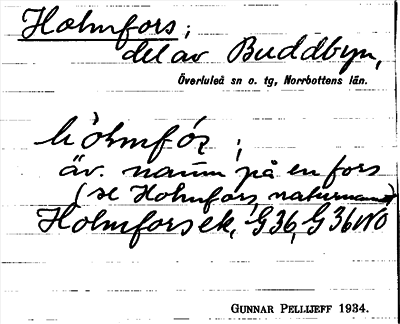 Holmfors;
del av Buddbyn,
Överluleå sn o. tg, Norrbottens län.
hȯlmfȯṛ;
äv. namn på en fors
(se Holmfors, naturnamn)
Holmfors ek, G 36, G 36 NO
GUNNAR PELLIJEFF 1934.